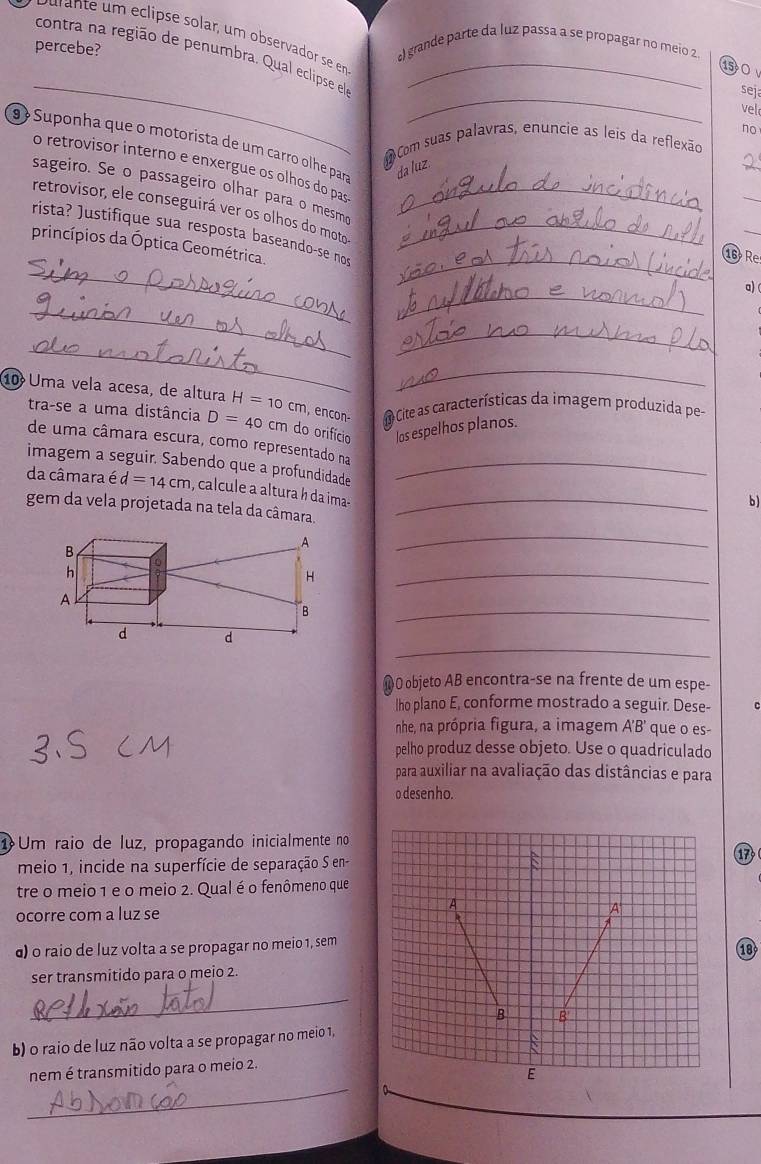 Durante um eclipse solar, um observador se en-
contra na região de penumbra. Qual eclipse ele
percebe?
9 Suponha que o motorista de um carro olhe para
o retrovisor interno e enxergue os olhos do pas-
sageiro. Se o passageiro olhar para o mesmo
retrovisor, ele conseguirá ver os olhos do moto-
rista? Justifique sua resposta baseando-se nos
princípios da Óptica Geométrica.
Sim o
ver os olhos
do motoristo
10 Uma vela acesa, de altura H = 10 cm, encon-
tra-se a uma distância D = 40 cm do orifício
de uma câmara escura, como representado na
imagem a seguir. Sabendo que a profundidade
da câmara é d = 14 cm, calcule a altura h da ima-
gem da vela projetada na tela da câmara.
B
A
O
h
H
A
B
d
d
3.5 CM
Um raio de luz, propagando inicialmente no
meio 1, incide na superfície de separação S en-
tre o meio 1 e o meio 2. Qual é o fenômeno que
ocorre com a luz se
a) o raio de luz volta a se propagar no meio 1, sem
ser transmitido para o meio 2.
Reflexão total
b) o raio de luz não volta a se propagar no meio 1,
nem é transmitido para o meio 2.
c) grande parte da luz passa a se propagar no meio 2.
12 Com suas palavras, enuncie as leis da reflexão
da luz.
o ângulo de incidência
é ao angulo de refle
xão. e os três raios (incide
e normal)
estão no mesmo pla
no
13 Cite as características da imagem produzida pe-
los espelhos planos.
14 O objeto AB encontra-se na frente de um espe-
lho plano E, conforme mostrado a seguir. Dese-
nhe, na própria figura, a imagem A'B' que o es-
pelho produz desse objeto. Use o quadriculado
para auxiliar na avaliação das distâncias e para
o desenho.
A
A'
B
B'
E
15 O v
seja
velo
no
16 Re
a)
b)
c
17
18